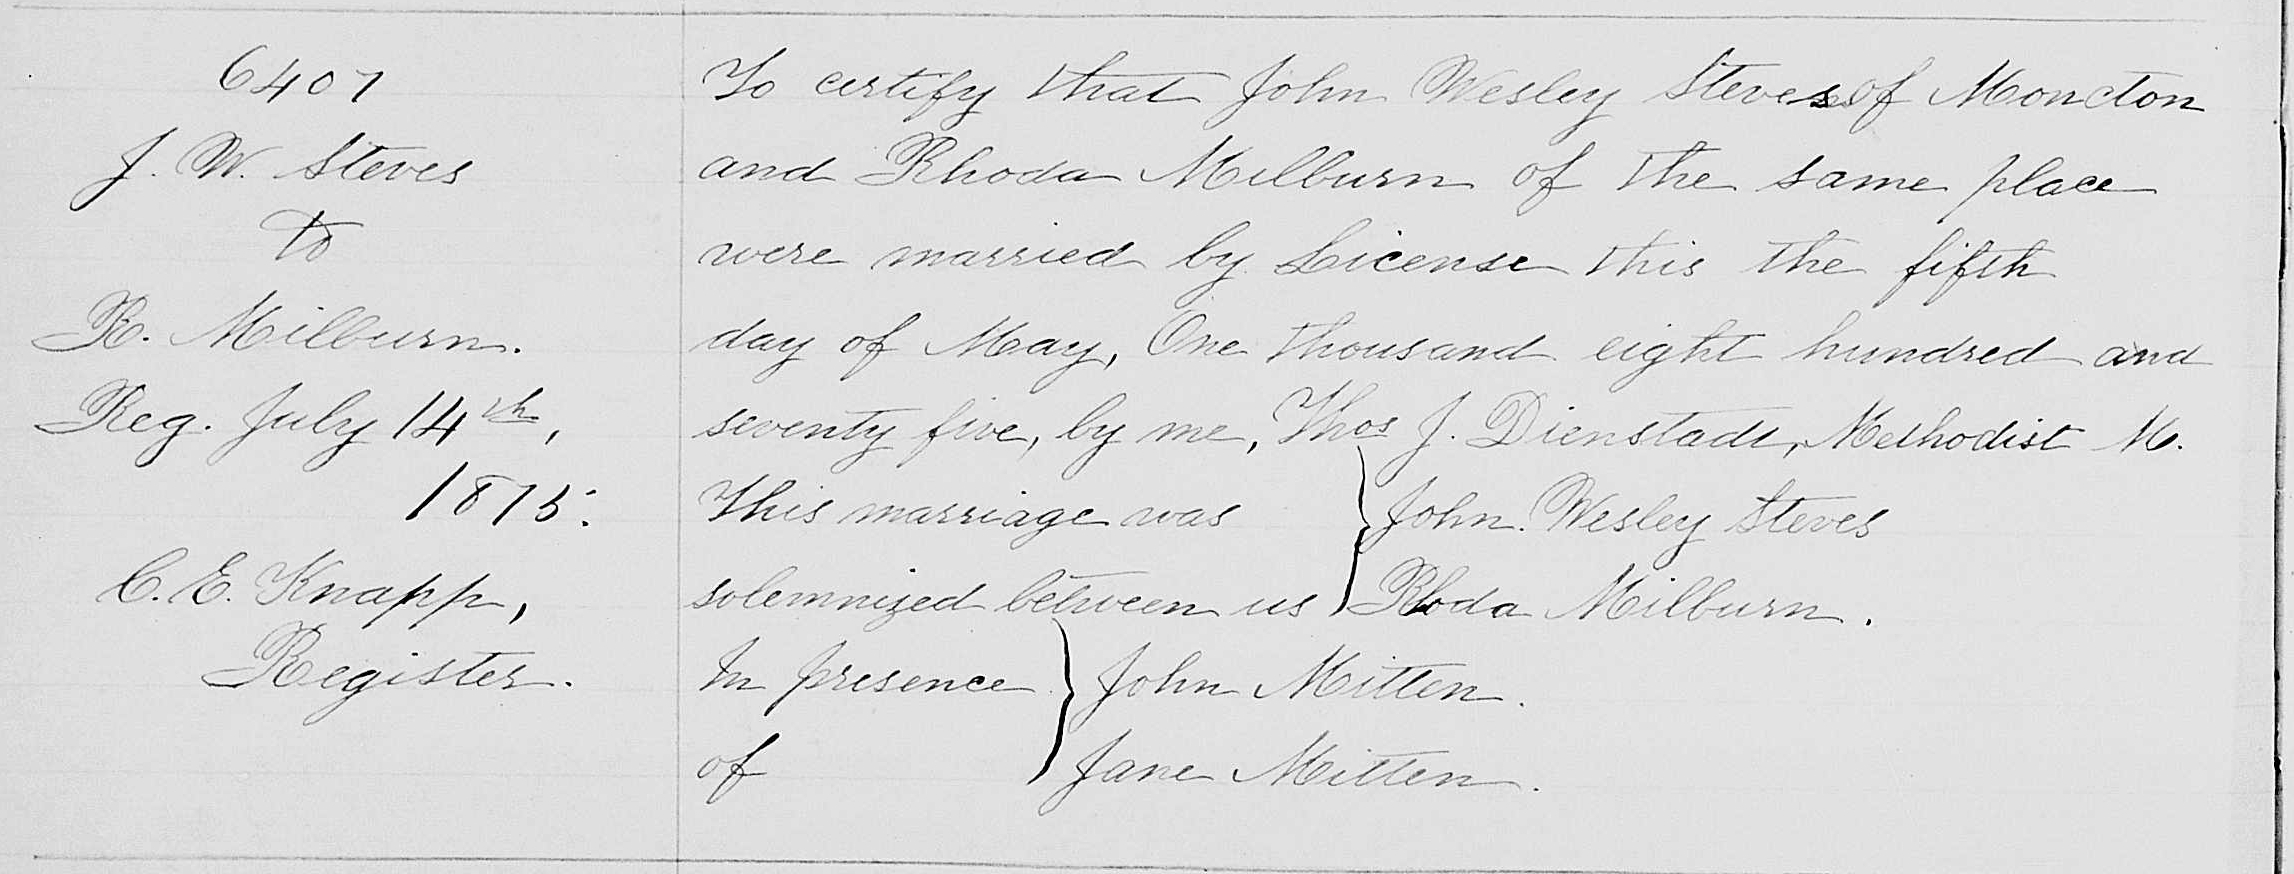 6407
J. W. Steves
to
R. Milburn.
Reg. July 14th,
1875.
C. E. Knapp,
Register.
To certify that John Wesley Steves of Moncton
and Rhoda Milburn of the same place
were married by License this the fifth
day of May, One thousand eight hundred and
seventy five, by me, Thos J. Dienstadt, Methodist M.
This marriage was } John Wesley Steves
solemnized between us } Rhoda Milburn.
In presence } John Mitten.
of } Jane Mitten.